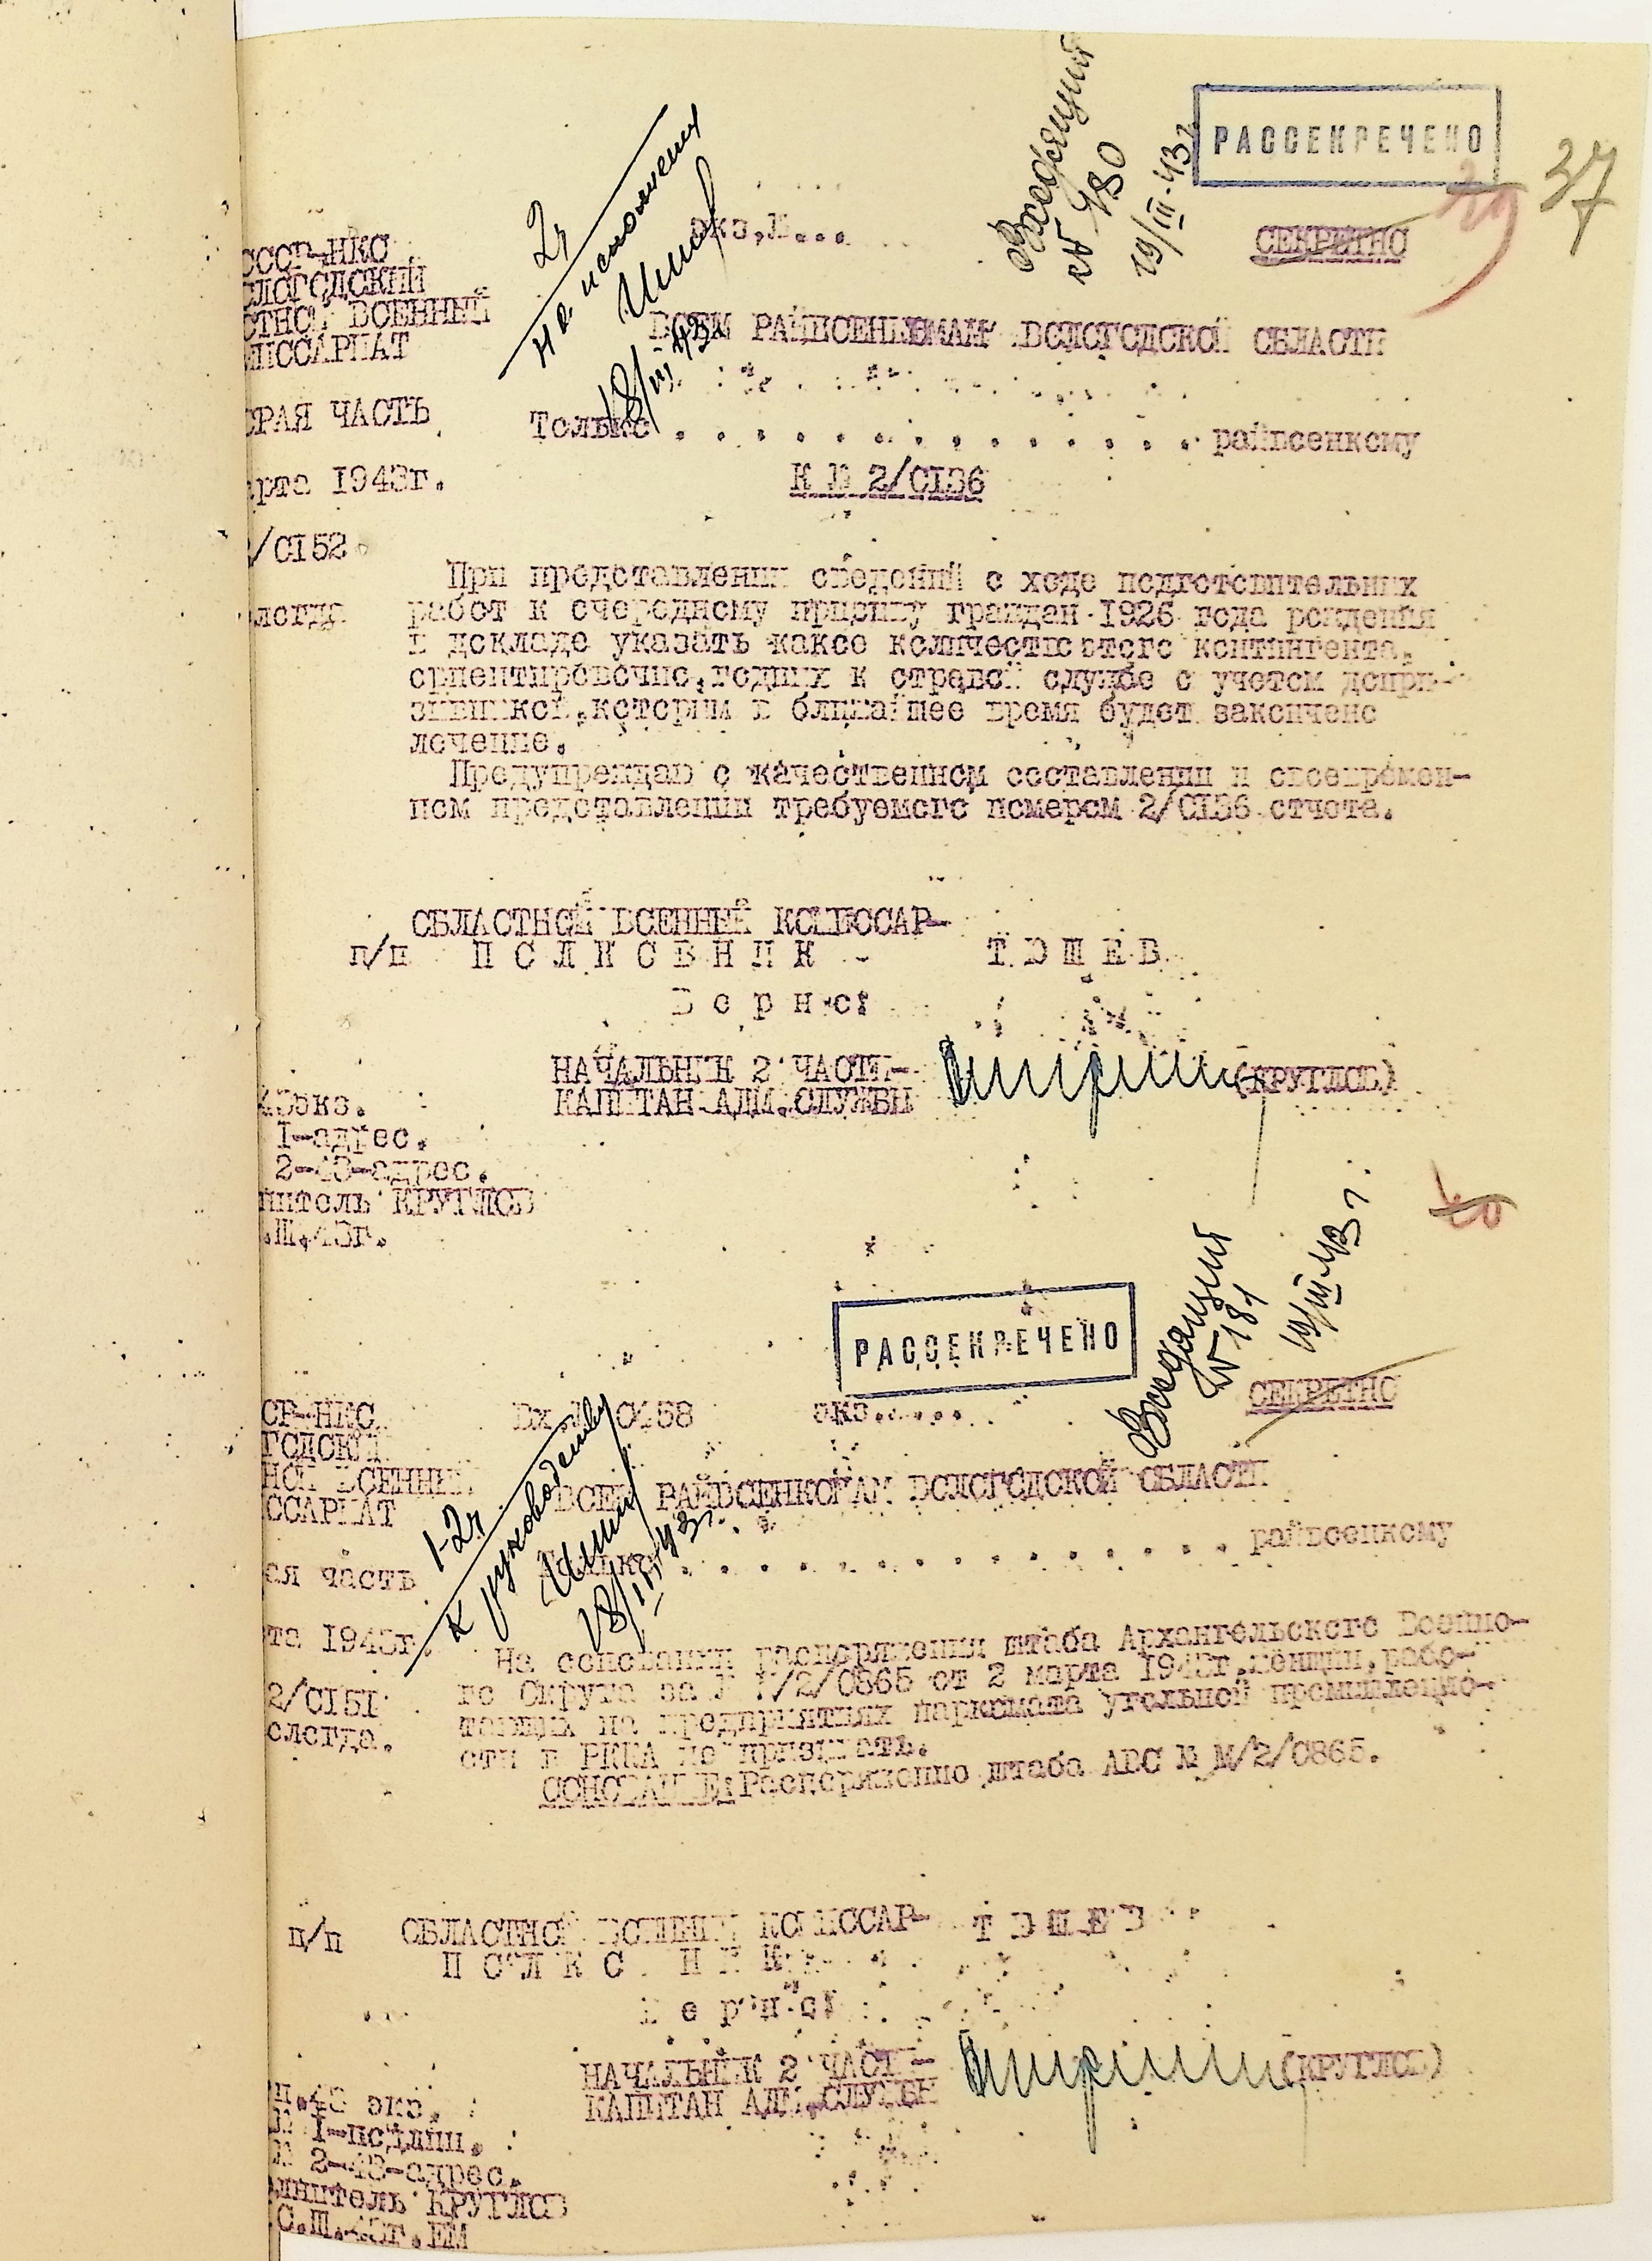 РАССЕКРЕЧЕНО
37
Входящий
№ 180
19/III-43г
2ч
на исполнение
18/III 43
экз.№...
СЕКРЕТНО
СССР-НКО
ЛОГОДСКИЙ
СТНОЙ ВОЕННЫЙ
МИССАРИАТ
ВСЕМ РАЙВОЕНКОМАМ ВОЛОГОДСКОЙ ОБЛАСТИ
ОРАЯ ЧАСТЬ
Только . . . . . . . . . . . . . . райвоенкому
арта 1943г.
К № 2/0136
/0152
ологда
При представлении сведений о ходе подготовительных
работ к очередному призыву граждан 1926 года рождения
в докладе указать какое количество этого контингента,
ориентировочно,годных к строевой службе с учетом допри-
зывников,которым в ближайшее время будет закончено
лечение.
Предупреждаю о качественном составлении и своевремен-
ном представлении требуемого номером 2/0136 отчета.
ОБЛАСТНОЙ ВОЕННЫЙ КОМИССАР-
п/п П О Л К О В Н И К - Т Э Ш Е В
В е р н о:
НАЧАЛЬНИК 2 ЧАСТИ-
КАПИТАН АДМ.СЛУЖБЫ (КРУГЛОВ)
43экз.
1-адрес.
2-43-адрес.
нитель КРУГЛОВ
.Ш.43г.
РАССЕКРЕЧЕНО
Входящий
№ 181
19/III 43 г.
СЕКРЕТНО
СР-НКО
ГОДСКИЙ
НОЙ ВОЕННЫЙ
ССАРИАТ
Вх.№ 0158 экз......
1-2ч
к руководству
18/III 43г.
ВСЕМ РАЙВОЕНКОМАМ ВОЛОГОДСКОЙ ОБЛАСТИ
Только . . . . . . . . . . . . . . райвоенкому
ая часть
та 1943г.
2/0151
ологда.
На основании распоряжения штаба Архангельского Военно-
го Округа за № М/2/0865 от 2 марта 1943г.женщин,рабо-
тающих на предприятиях наркомата угольной промышленно-
сти в РККА не призывать.
ОСНОВАНИЕ:Распоряжение штаба АВО № М/2/0865.
п/п ОБЛАСТНОЙ ВОЕННЫЙ КОМИССАР- Т Э Ш Е В
П О Л К О В Н И К
В е р н о:
НАЧАЛЬНИК 2 ЧАСТИ-
КАПИТАН АДМ.СЛУЖБЫ (КРУГЛОВ)
п.43 экз.
№ 1-подлин.
№ 2-43-адрес.
лнитель КРУГЛОВ
.Ш.43г.ЕМ